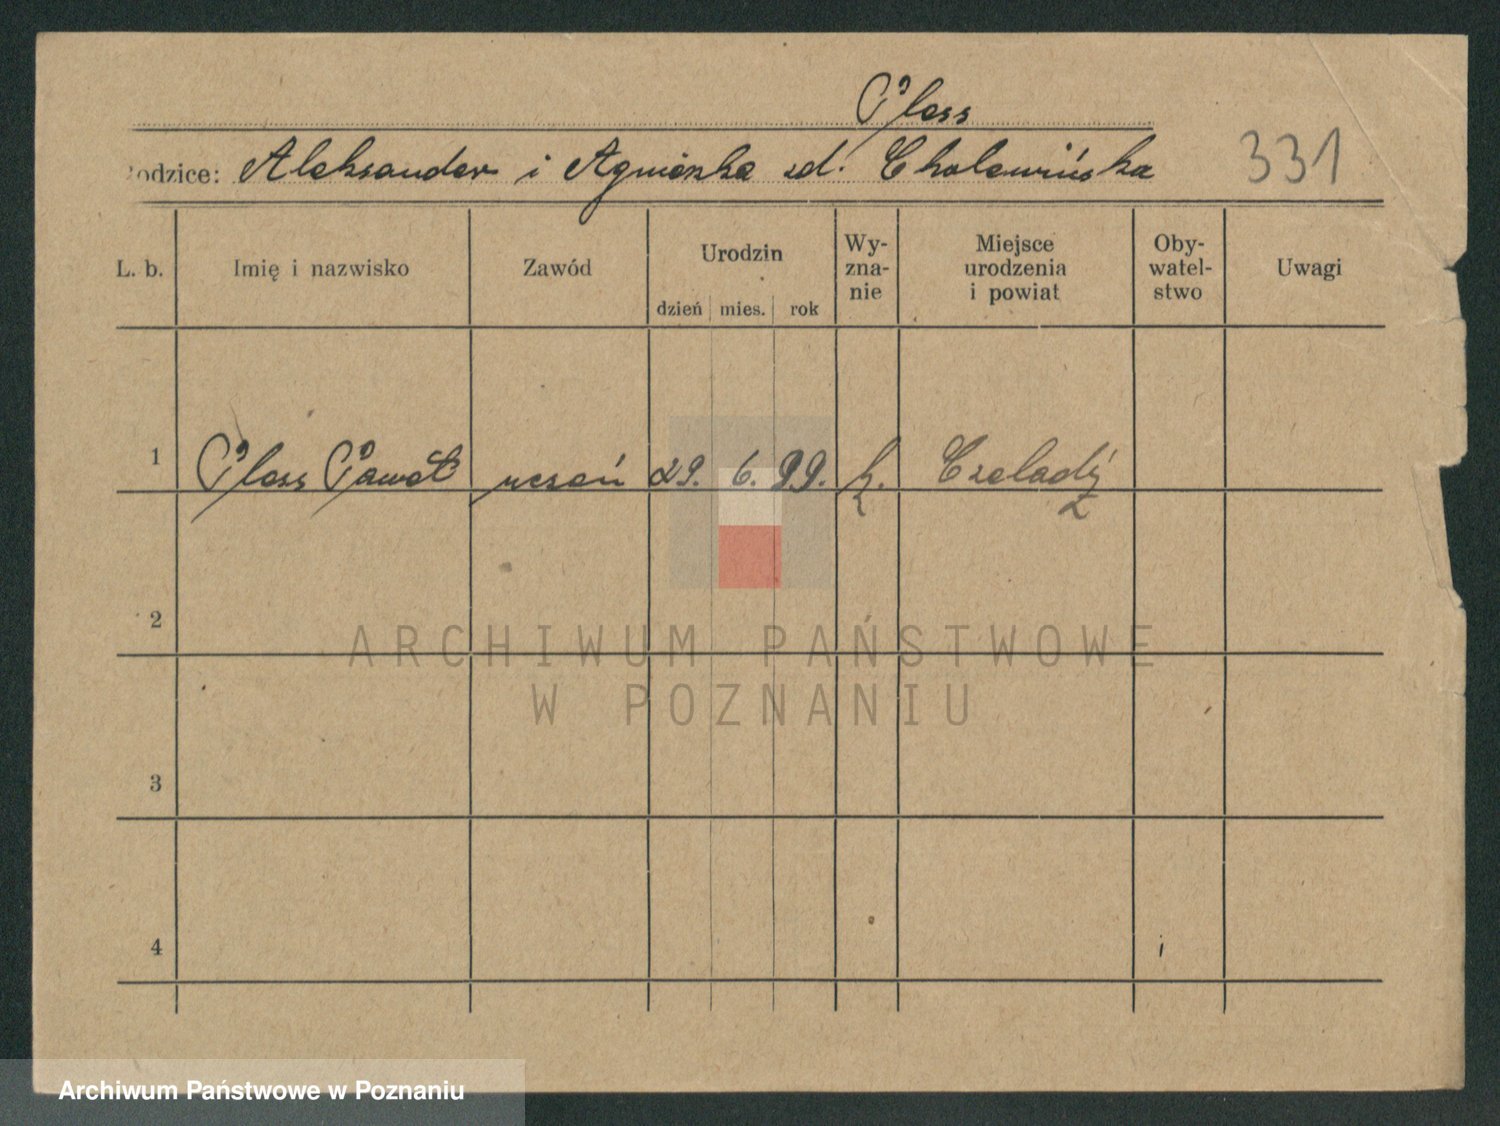 Pless
Rodzice: Aleksander i Agnieszka zd. Cholewińska
331
L. b. Imię i nazwisko Zawód Urodzin dzień mies. rok Wy-zna-nie Miejsce urodzenia i powiat Oby-watel-stwo Uwagi
1 Pless Paweł uczeń 29. 6. 99. k. Czeladź
2
3
4
ARCHIWUM PAŃSTWOWE
W POZNANIU
Archiwum Państwowe w Poznaniu